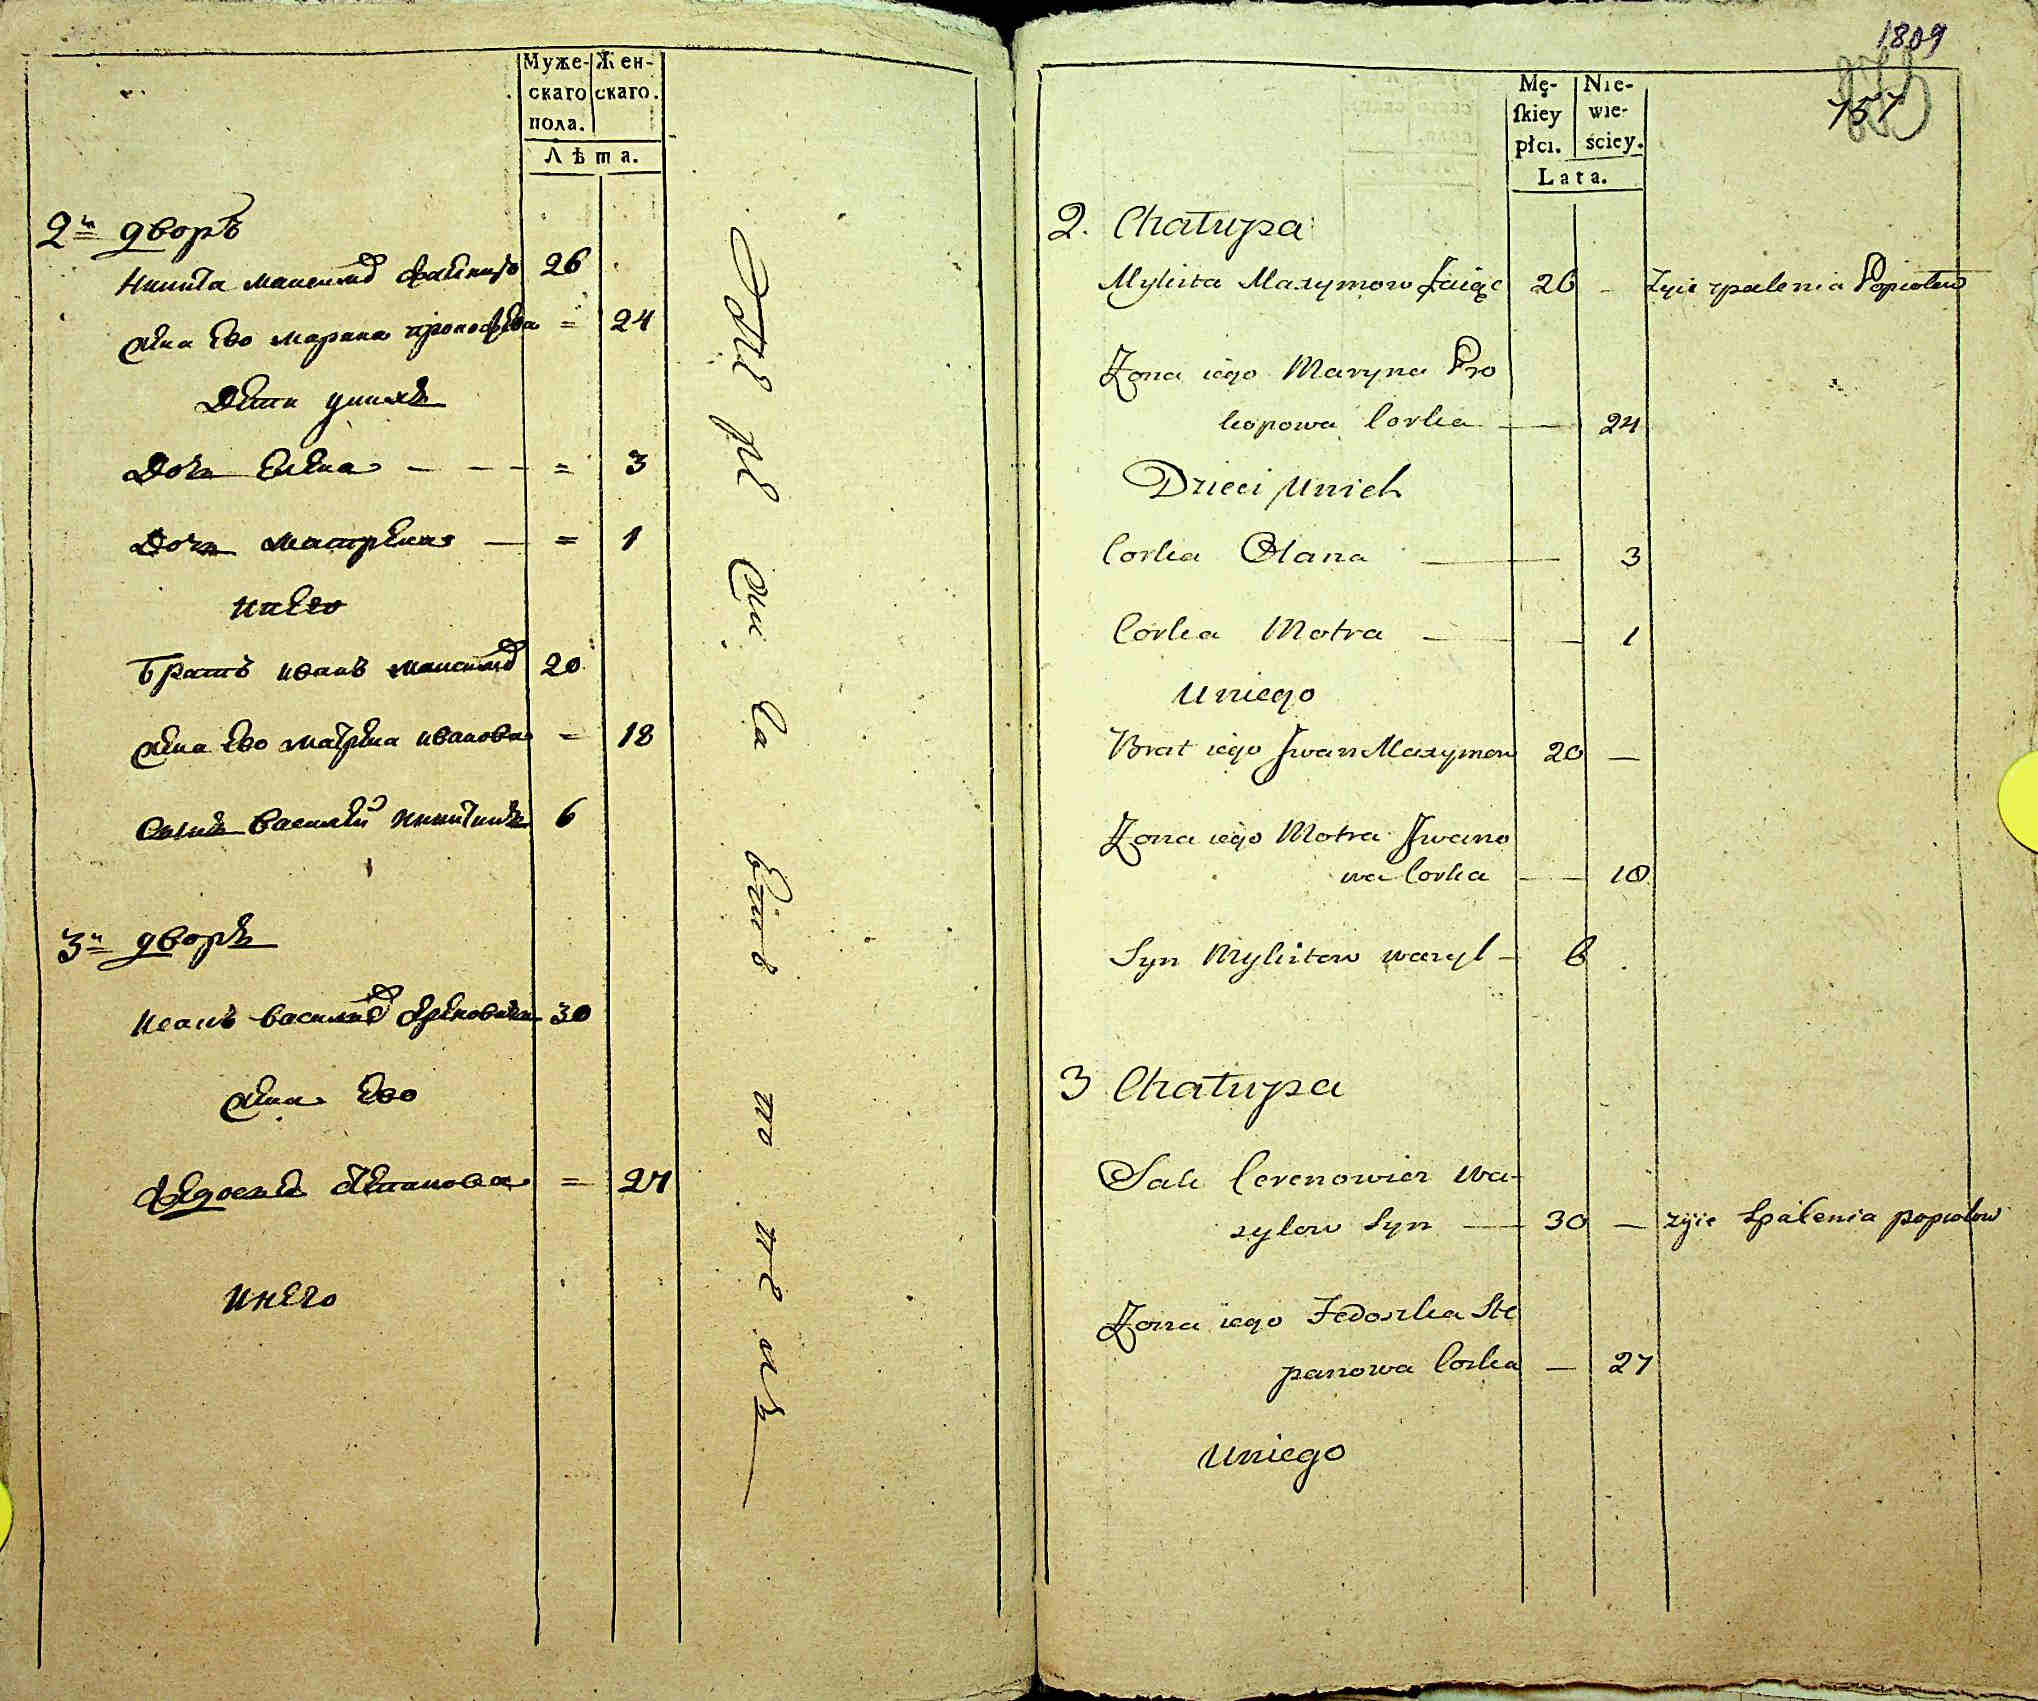 Муже- Жен-
скаго скаго.
пола.
Лѣта.
2й дворъ
Никита максимов 26
жена Ево марина прокофева = 24
Дети у них
Доч Елена — — — = 3
Доч матрена — = 1
Унево
Братъ иванъ максимов 20
жена Ево матрена иванова = 18
Сынъ василей никитинъ 6
3й дворъ
Иванъ василев 30
жена Ево
Федосья степанова = 27
Унего
1809
157
Mę- Nie-
ſkiey wie-
płci. ściey.
Lata.
2. Chałupa
Mykita Maxymow Zaiąc 26 — Zyie zpalenia Popiołow
Zona iego Maryna Pro
kopowa Corka — — 24
Dzieci unich
Corka Olana — — 3
Corka Motra — — 1
Uniego
Brat iego Jwan Maxymow 20 —
Zona iego Motra Jwano
wa Corka — — 18
Syn Mykitow wazyl — 6
3 Chałupa
Cerenowicz wa-
zylow Syn — 30 — zyie Spalenia popiołow
Zona iego Fedoszka Ste
panowa Corka — 27
Uniego